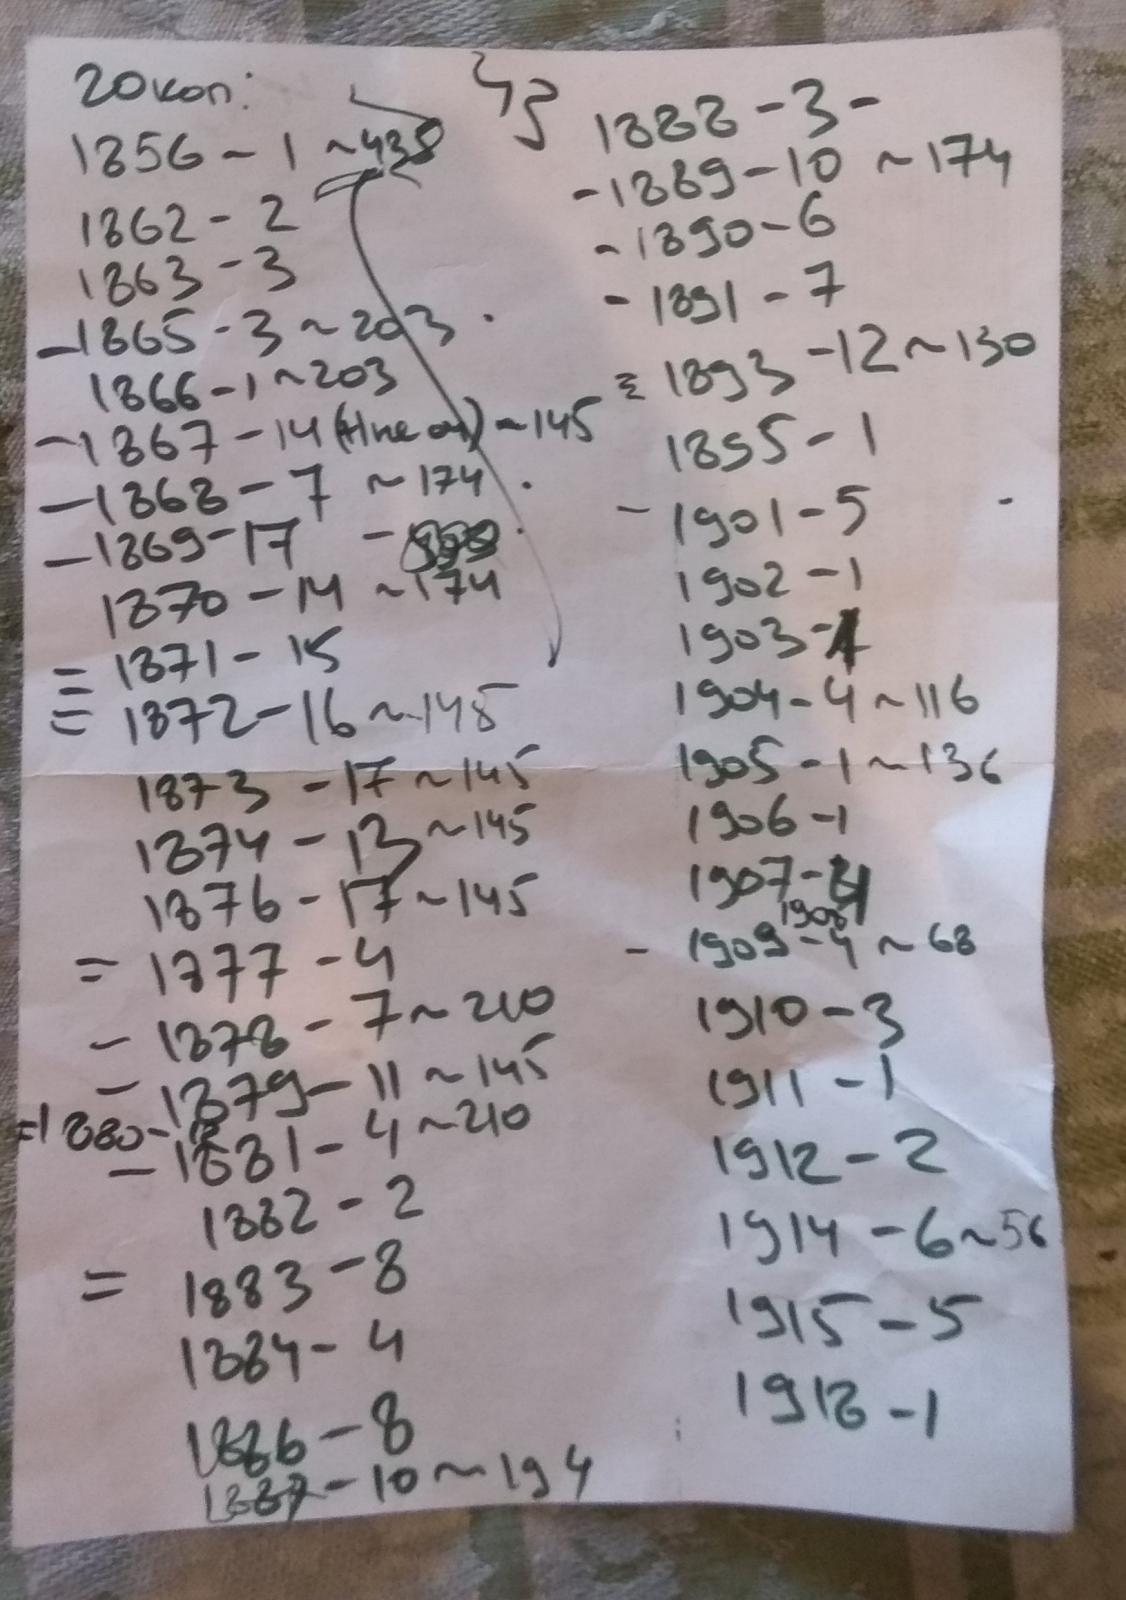 20 коп:
1856 - 1 ~ 438
1862 - 2
1863 - 3
- 1865 - 3 ~ 203 .
1866 - 1 ~ 203
- 1867 - 14 ~ 145
- 1868 - 7 ~ 174 .
- 1869 - 17 -
1870 - 14 ~ 174
= 1871 - 15
= 1872 - 16 ~ 145
1873 - 17 ~ 145
1874 - 13 ~ 145
1876 - 17 ~ 145
= 1877 - 4
- 1878 - 7 ~ 210
- 1879 - 11 ~ 145
= 1880 -
- 1881 - 4 ~ 210
1882 - 2
= 1883 - 8
1884 - 4
1886 - 8
1887 - 10 ~ 194
43
1888 - 3 -
- 1889 - 10 ~ 174
- 1890 - 6
- 1891 - 7
≡ 1893 - 12 ~ 130
1895 - 1
- 1901 - 5
1902 - 1
1903 - 1
1904 - 4 ~ 116
1905 - 1 ~ 136
1906 - 1
1907 - 4
1908
- 1909 - 4 ~ 68
1910 - 3
1911 - 1
1912 - 2
1914 - 6 ~ 56
1915 - 5
1918 - 1